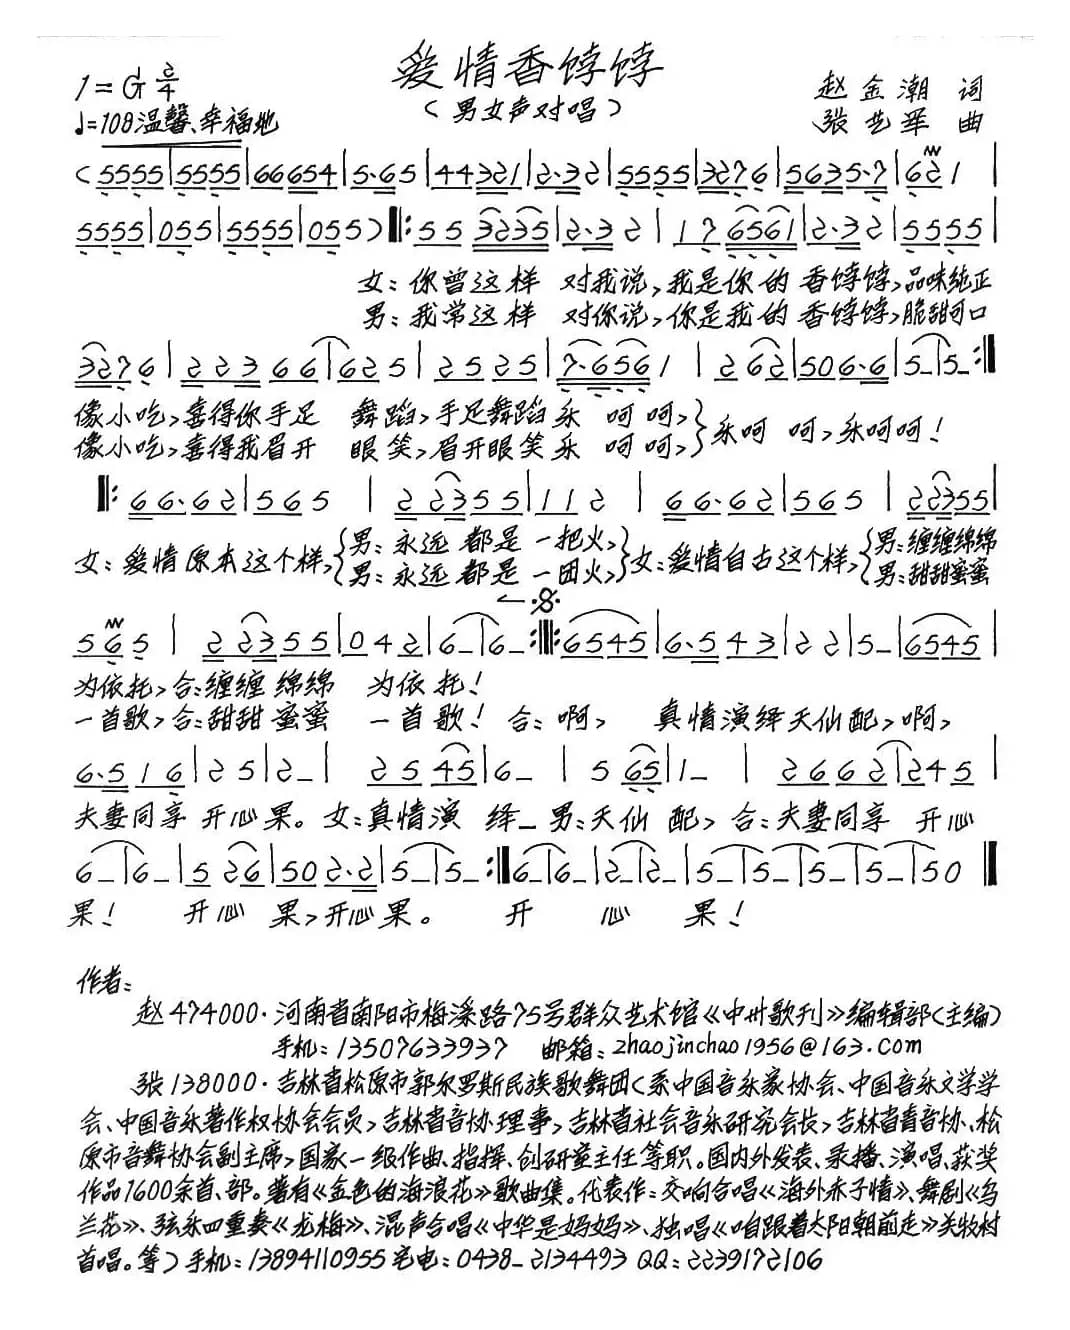 爱情香饽饽
(男女声对唱)
1=G 2/4
♩=108 温馨、幸福地
赵金潮 词
张艺军 曲
(5555|5555|66654|5·65|44321|2·32|5555|3276|5635·7|621|
5555|055|5555|055)‖:55 3235|2·32|17 6561|2·32|5555|
女:你曾这样 对我说,我是你的 香饽饽,品味纯正
男:我常这样 对你说,你是我的 香饽饽,脆甜可口
3276|22366|625|2525|7·6561|262|506·6|5_|5_:‖
像小吃,喜得你手足 舞蹈,手足舞蹈乐 呵 呵,}乐呵 呵,乐呵呵!
像小吃,喜得我眉开 眼笑,眉开眼笑乐 呵 呵,
‖:66·62|565|22355|112|66·62|565|22355|
女:爱情原本这个样,{男:永远 都是 一把火,}女:爱情自古这个样,{男:缠缠绵绵
男:永远 都是 一团火, 男:甜甜蜜蜜
565|22355|042|6_|6_:‖:6545|6·543|22|5_|6545|
为依托,合:缠缠 绵绵 为依托!
一首歌,合:甜甜 蜜蜜 一首歌! 合:啊, 真情演绎天仙配,啊,
6·516|25|2_|2545|6_|565|1_|2662|245|
夫妻同享 开心果。女:真情演 绎_ 男:天仙 配, 合:夫妻同享 开心
6_|6_|526|502·2|5_|5_:‖6_|6_|2_|2_|5_|5_|5_|5_|50‖
果! 开心 果,开心果。 开 心 果!
作者:
赵474000·河南省南阳市梅溪路75号群众艺术馆《中州歌刊》编辑部(主编)
手机:13507633937 邮箱:zhaojinchao1956@163.com
张138000·吉林省松原市郭尔罗斯民族歌舞团(系中国音乐家协会、中国音乐文学学
会、中国音乐著作权协会会员,吉林省音协理事,吉林省社会音乐研究会长,吉林省青音协、松
原市音舞协会副主席,国家一级作曲、指挥、创研室主任等职。国内外发表、录播、演唱、获奖
作品1600余首、部。著有《金色的海浪花》歌曲集。代表作:交响合唱《海外赤子情》、舞剧《乌
兰花》、弦乐四重奏《龙梅》、混声合唱《中华是妈妈》、独唱《咱跟着太阳朝前走》关牧村
首唱。等)手机:13894110955宅电:0438-2134493 QQ:2239172106